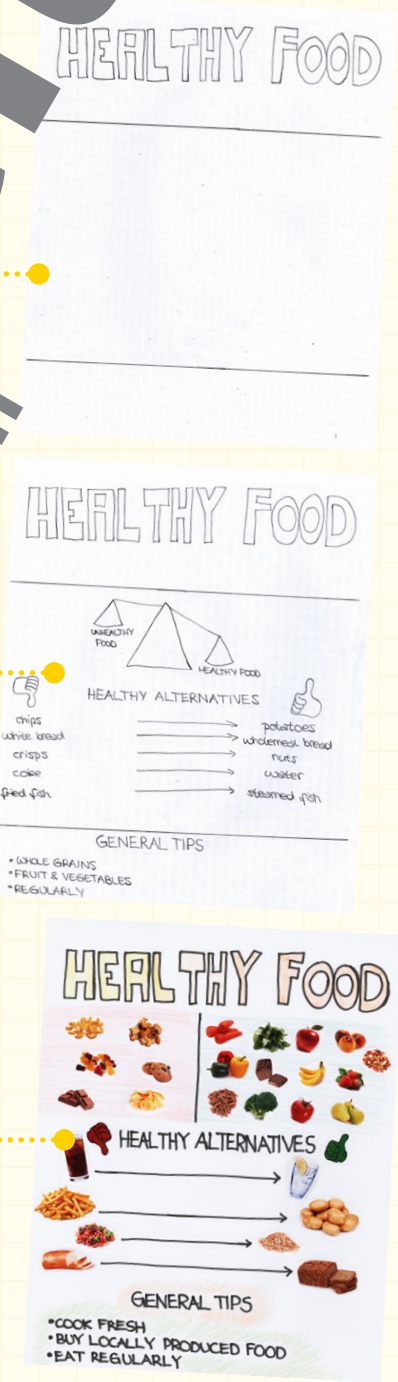 HEALTHY FOOD
HEALTHY FOOD
UNHEALTHY
FOOD
HEALTHY FOOD
HEALTHY ALTERNATIVES
chips potatoes
white bread wholemeal bread
crisps nuts
coke water
fried fish steamed fish
GENERAL TIPS
• WHOLE GRAINS
• FRUIT & VEGETABLES
• REGULARLY
HEALTHY FOOD
HEALTHY ALTERNATIVES
GENERAL TIPS
• COOK FRESH
• BUY LOCALLY PRODUCED FOOD
• EAT REGULARLY